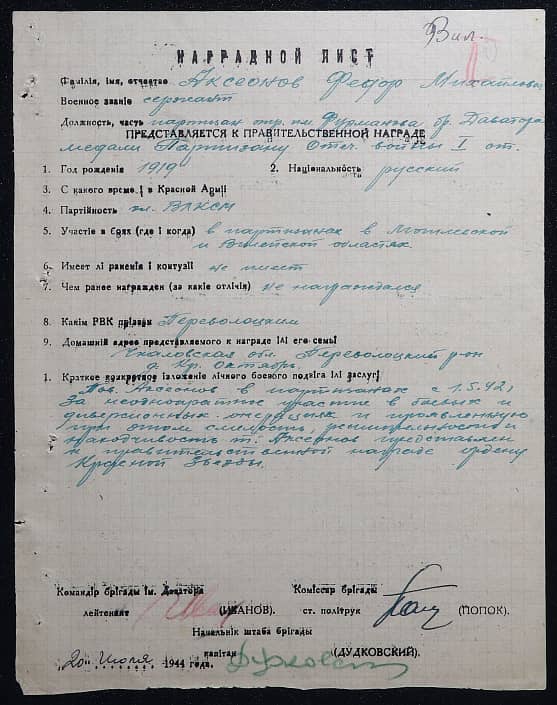 Вил.
НАГРАДНОЙ ЛИСТ
Фамілія, імя, отчество Аксеонов Федор Михайлович
Военное званіе сержант
Должность, часть партизан отр. им. Фурманова бр. Даватора
ПРЕДСТАВЛЯЕТСЯ К ПРАВИТЕЛЬСТВЕННОЙ НАГРАДЕ
медали Партизану Отеч. войны I ст.
1. Год рождения 1919 2. Національность русский
3. С какого времені в Красной Арміі
4. Партійность чл. ВЛКСМ
5. Участіе в боях (где і когда) в партизанах в Могилевской
и Вилейской областях
6. Имеет лі раненія і контузіі не имеет
7. Чем ранее награжден (за какіе отлічія) не награждался
8. Какім РВК прізван Переволоцким
9. Домашній адрес представляемого к награде ілі его семьі
Чкаловская обл. Переволоцкий р-он
д. Кр. Октябрь.
1. Краткое конкретное ізложеніе лічного боевого подвіга ілі заслуг
Тов. Аксеонов в партизанах с 1.5.42г
За неоднократное участие в боевых и
диверсионных операциях и проявленную
при этом смелость, решительность и
находчивость т. Аксеонов представлен
к правительственной награде ордену
Красной Звезды.
Командір брігады ім. Даватора Коміссар брігады
лейтенант (ИВАНОВ). ст. політрук (ПОПОК).
Начальнік штаба брігады
капітан (ДУДКОВСКИЙ)
„20" Июля 1944 года.